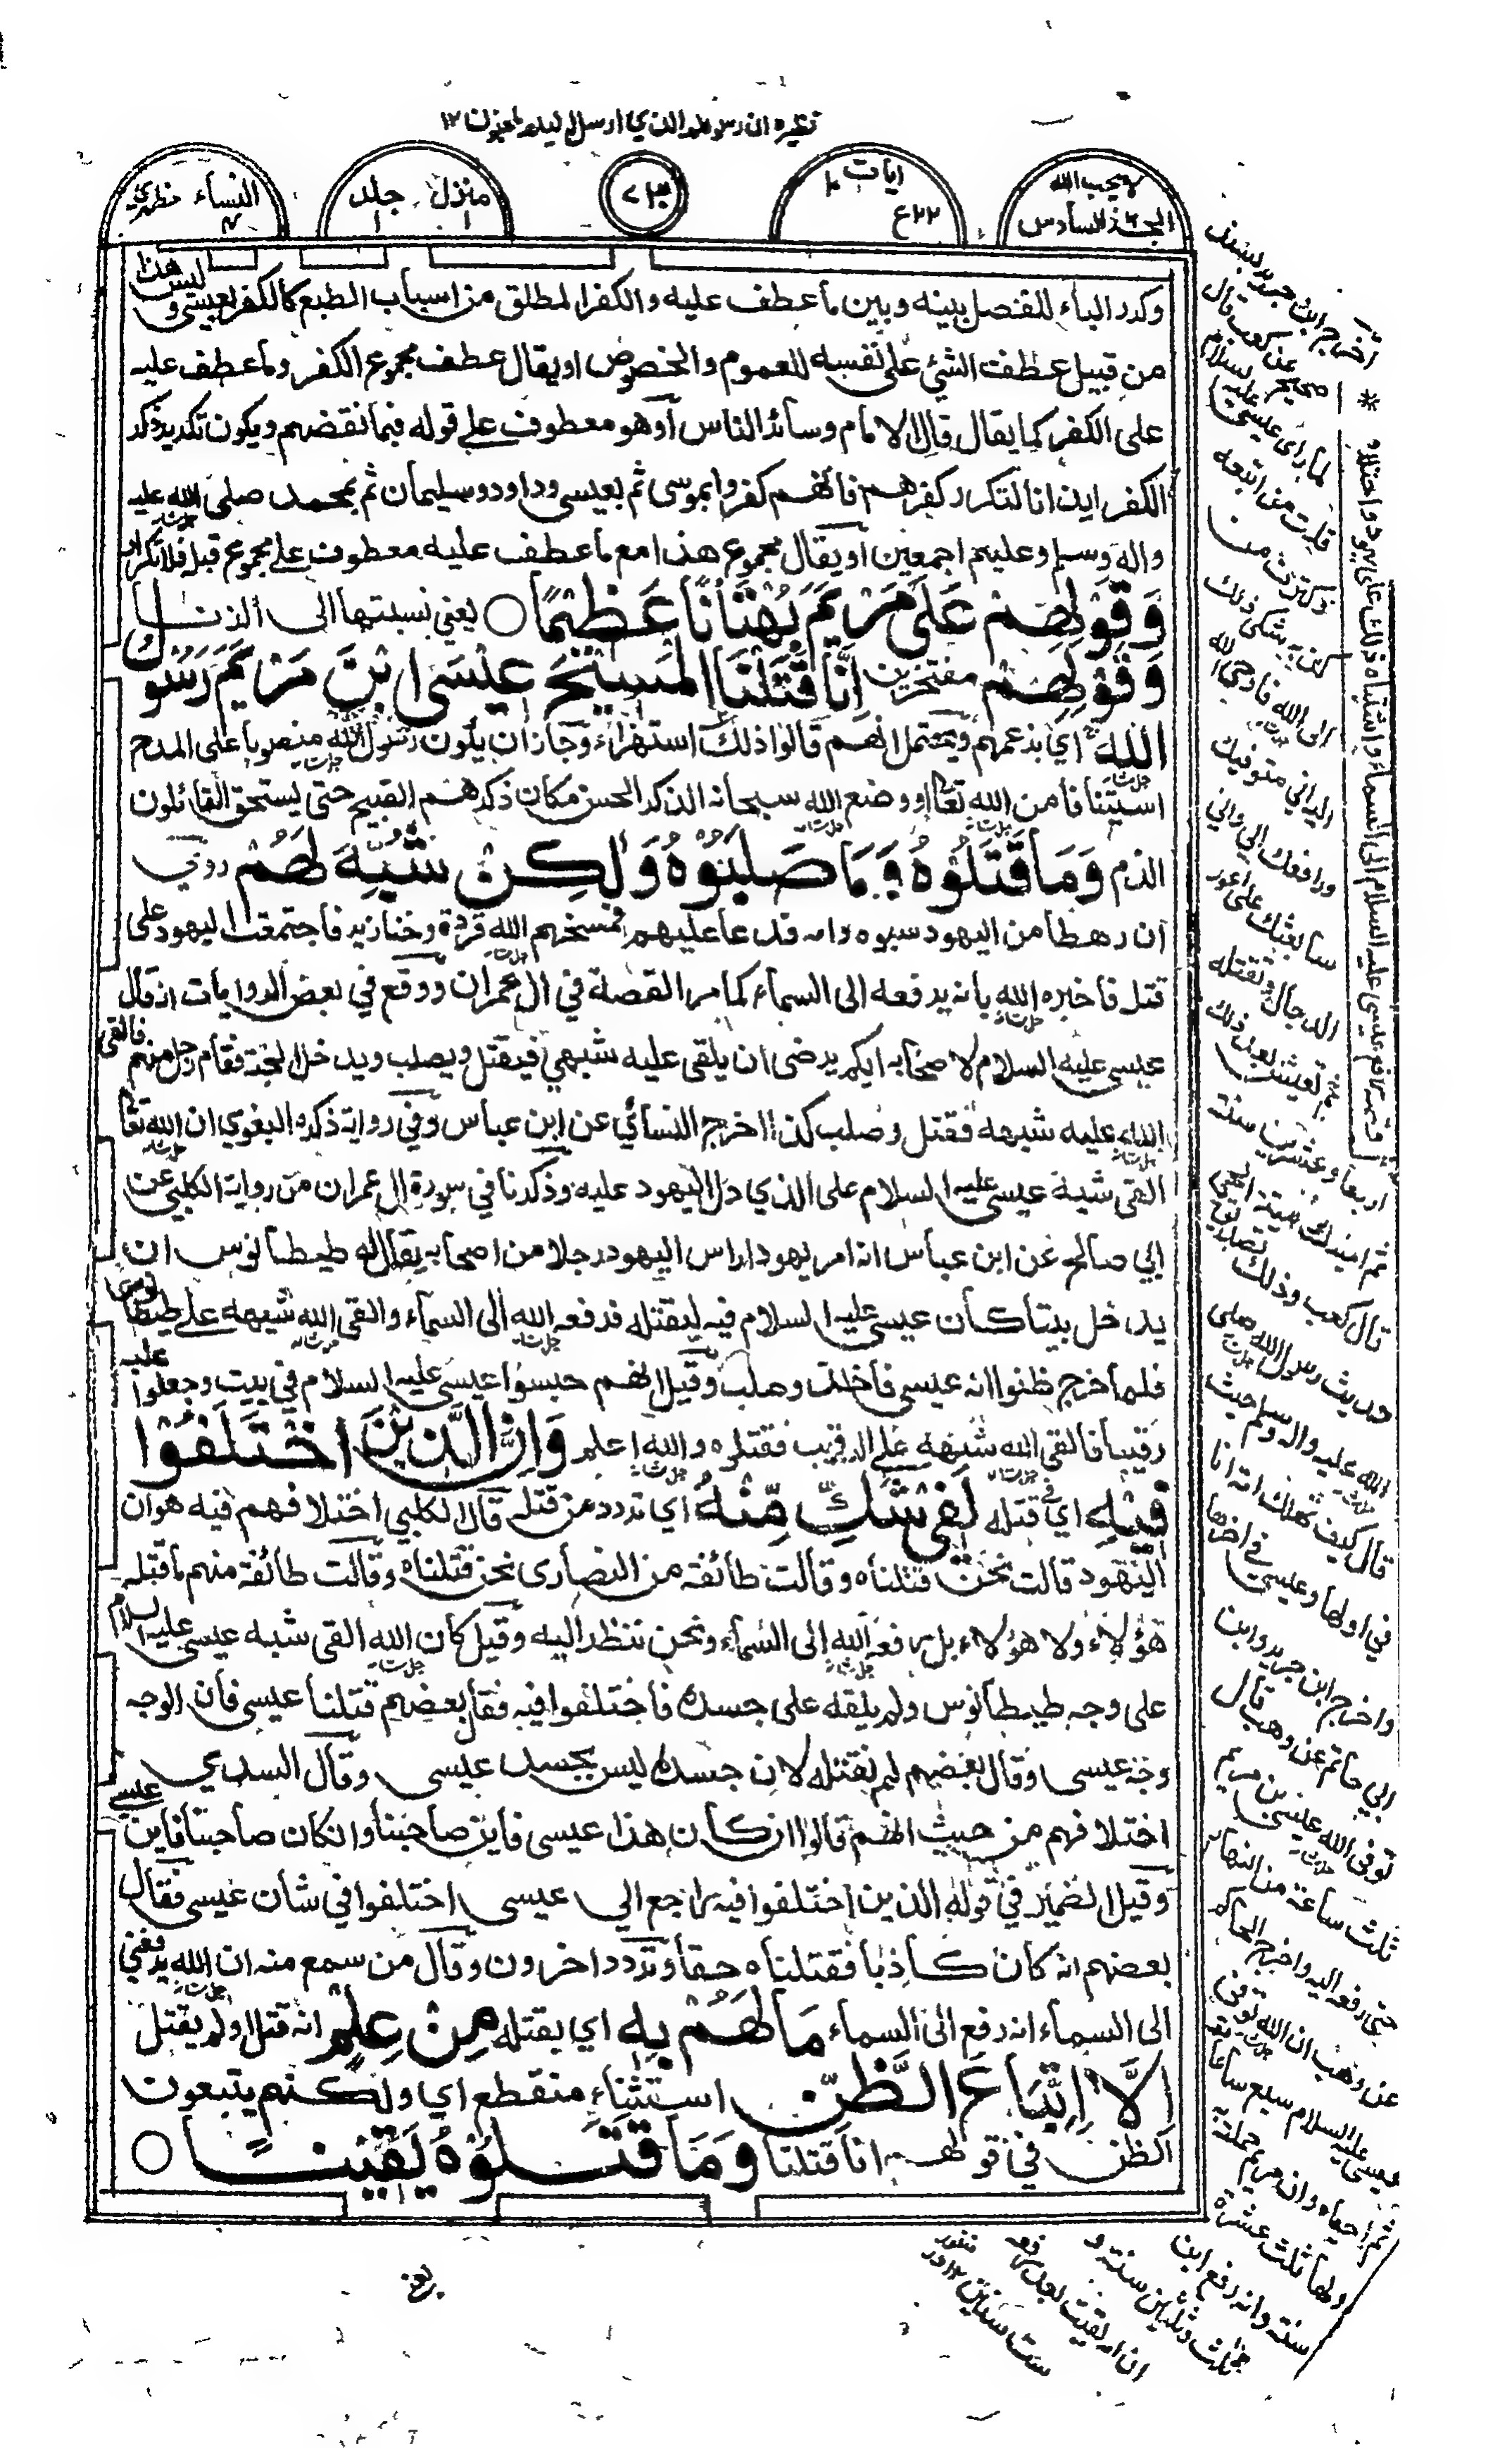 نظيره ان رسولكم الذي ارسل اليكم لمجنون ١٢
لا يحب الله
الجزء السادس
ايات
ع ٢٢
منزل جلد
١ ١
النساء مظهري
٤
وكرر الباء للفصل بينه وبين ما عطف عليه والكفر المطلق من اسباب الطبع كالكفر بعيسى وليس هذا
من قبيل عطف الشئ على نفسه للعموم والخصوص او يقال عطف مجموع الكفر وما عطف عليه
على الكفر كما يقال قال الامام وسائر الناس او هو معطوف على قوله فبما نقضهم ويكون تكرير ذكر
الكفر ايذانا لتكرر كفرهم فانهم كفروا بموسى ثم بعيسى وداود وسليمان ثم بمحمد صلى الله عليه
واله وسلم وعليهم اجمعين او يقال مجموع هذا مع ما عطف عليه معطوف على مجموع قبله فلا تكرار
وَقَوْلِهِمْ عَلٰى مَرْيَمَ بُهْتَانًا عَظِيْمًا ○ يعني نسبتها الى الزنا
وَقَوْلِهِمْ مفتخرين اِنَّا قَتَلْنَا الْمَسِيْحَ عِيْسَى ابْنَ مَرْيَمَ رَسُوْلَ
اللهِ اي بزعمهم ويحتمل انهم قالوا ذلك استهزاء وجاز ان يكون رسول الله منصوبا على المدح
استينافا من الله تعالى او وضع الله سبحانه الذكر الحسن مكان ذكرهم القبيح حتى يستحق القائلون
الذم وَمَا قَتَلُوْهُ وَمَا صَلَبُوْهُ وَلٰكِنْ شُبِّهَ لَهُمْ روي
ان رهطا من اليهود سبوه وامه فدعا عليهم فمسخهم الله قردة وخنازير فاجتمعت اليهود على
قتله فاخبره الله بانه يرفعه الى السماء كما مر القصة في ال عمران ووقع في بعض الروايات انه قال
عيسى عليه السلام لاصحابه ايكم يرضى ان يلقى عليه شبهي فيقتل ويصلب ويدخل الجنة فقام رجل منهم فالقى
الله عليه شبهه فقتل وصلب كذا اخرج النسائي عن ابن عباس وفي رواية ذكره البغوي ان الله تعالى
القى شبه عيسى عليه السلام على الذي دل اليهود عليه وذكرنا في سورة ال عمران من رواية الكلبي عن
ابي صالح عن ابن عباس انه امر يهودا راس اليهود رجلا من اصحابه يقال له طيطانوس ان
يدخل بيتا كان عيسى عليه السلام فيه ليقتله فرفعه الله الى السماء والقى الله شبهه على طيطانوس
فلما خرج ظنوا انه عيسى فاخذ وصلب وقيل انهم حبسوا عيسى عليه السلام في بيت وجعلوا عليه
رقيبا فالقى الله شبهه على الرقيب فقتلوه والله اعلم وَاِنَّ الَّذِيْنَ اخْتَلَفُوْا
فِيْهِ اي في قتله لَفِيْ شَكٍّ مِّنْهُ اي تردد من قتله قال الكلبي اختلافهم فيه هو ان
اليهود قالت نحن قتلناه وقالت طائفة من النصارى نحن قتلناه وقالت طائفة منهم ما قتله
هؤلاء ولا هؤلاء بل رفعه الله الى السماء ونحن ننظر اليه وقيل كان الله القى شبه عيسى عليه السلام
على وجه طيطانوس ولم يلقه على جسده فاختلفوا فيه فقال بعضهم قتلنا عيسى فان الوجه
وجه عيسى وقال بعضهم لم نقتله لان جسده ليس بجسد عيسى وقال السدي
اختلافهم من حيث انهم قالوا ان كان هذا عيسى فاين صاحبنا وان كان صاحبنا فاين عيسى
وقيل الضمير في قوله الذين اختلفوا فيه راجع الى عيسى اختلفوا في شان عيسى فقال
بعضهم انه كان كاذبا فقتلناه حقا وتردد اخرون وقال من سمع منه ان الله يرفعني
الى السماء انه رفع الى السماء مَا لَهُمْ بِهِ اي بقتله مِنْ عِلْمٍ انه قتل او لم يقتل
اِلَّا اتِّبَاعَ الظَّنِّ استثناء منقطع اي ولكنهم يتبعون
الظن في قولهم انا قتلنا وَمَا قَتَلُوْهُ يَقِيْنًا ○
* اخرج ابن جرير بسند
صحيح عن كعب قال
لما راى عيسى عليه السلام
قلة من اتبعه
وكثرة من
كذبه شكى ذلك
الى الله فاوحى الله
اليه اني متوفيك
ورافعك الي واني
سابعثك على الاعور
الدجال فتقتله
ثم تعيش بعد ذلك
اربعا وعشرين سنة
ثم اميتك ميتة الحي
قال كعب وذلك تصديق
حديث رسول الله صلى
الله عليه واله وسلم حيث
قال كيف تهلك امة انا
في اولها وعيسى في اخرها
واخرج ابن جرير وابن
ابي حاتم عن وهب قال
توفى الله عيسى بن مريم
ثلث ساعة من النهار
حتى رفعه اليه واخرج الحاكم
عن وهب ان الله توفى
عيسى عليه السلام سبع ساعات
ثم احياه وان مريم حملت به
ولها ثلث عشرة
سنة وانه رفع ابن
ثلث وثلثين سنة و
ان امه بقيت بعد رفعه
ست سنين ١٢
قصة رفع عيسى عليه السلام الى السماء واشتباه ذلك على يهود واختلاف